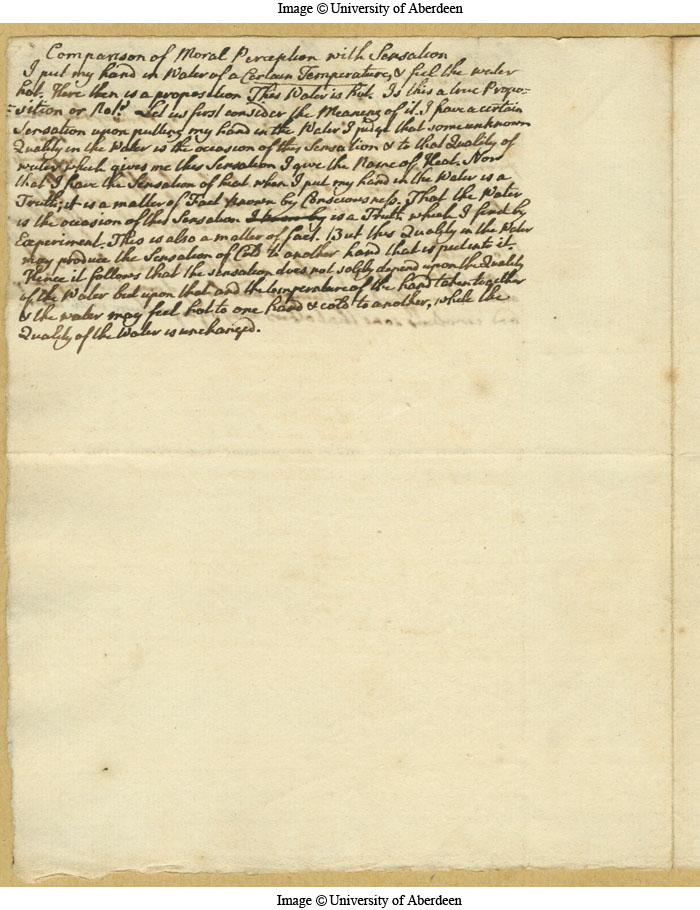 Image © University of Aberdeen
Comparison of Moral Perception with Sensation
I put my hand in Water of a Certain Temperature, & feel the water
hot. Here then is a proposition This Water is Hot. Is this a true Propo-
-sition or Not? Let us first consider the Meaning of it. I have a certain
Sensation upon putting my hand in the Water I judge that some unknown
Quality in the Water is the occasion of this Sensation & to that Quality of
water which gives me this Sensation I give the Name of Heat. Now
that I have the Sensation of heat when I put my hand in the Water is a
Truth, it is a matter of Fact known by Consciousness. That the Water
is the occasion of that Sensation I know by is a Truth which I find by
Experiment. This is also a matter of fact. But this Quality in the Water
may produce the Sensation of Cold to another hand that is put into it.
Hence it follows that the sensation does not solely depend upon the Quality
of the Water but upon that and the temperature of the hand taken together
& the water may feel hot to one hand & cold to another, while the
Quality of the Water is unchanged.
Image © University of Aberdeen